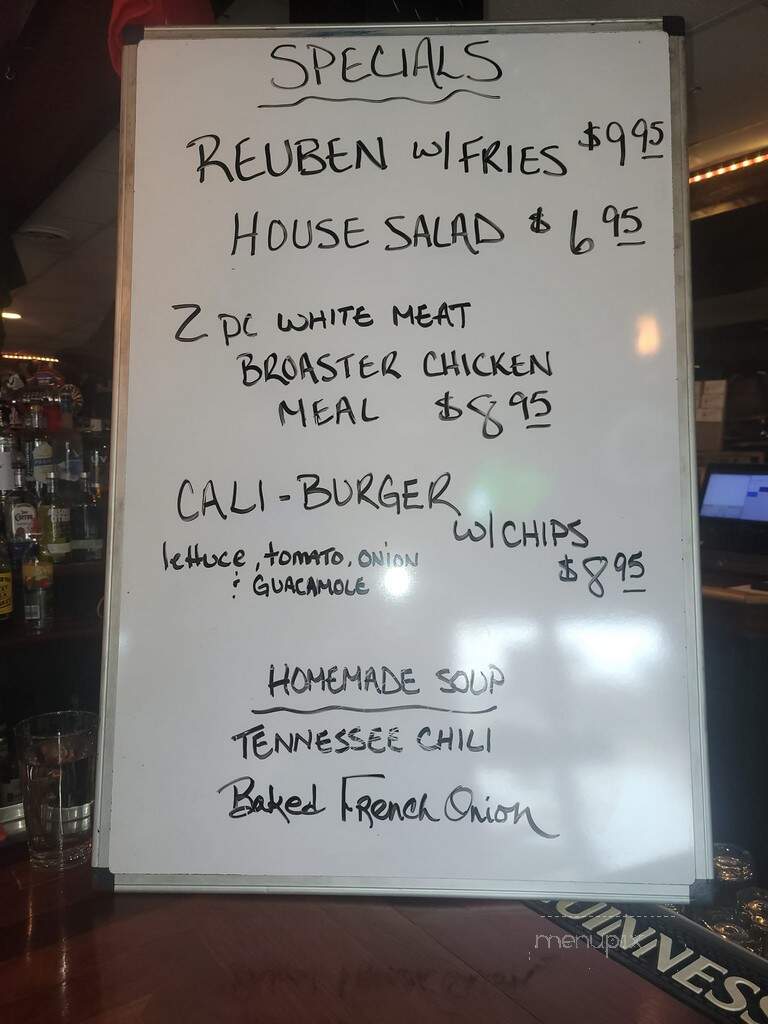 SPECIALS
REUBEN W/FRIES $9 95
HOUSE SALAD $6 95
2 PC WHITE MEAT
BROASTER CHICKEN
MEAL $8 95
CALI-BURGER
W/CHIPS
lettuce, tomato, onion
& GUACAMOLE
$8 95
HOMEMADE SOUP
TENNESSEE CHILI
Baked French Onion
GUINNESS
menupix